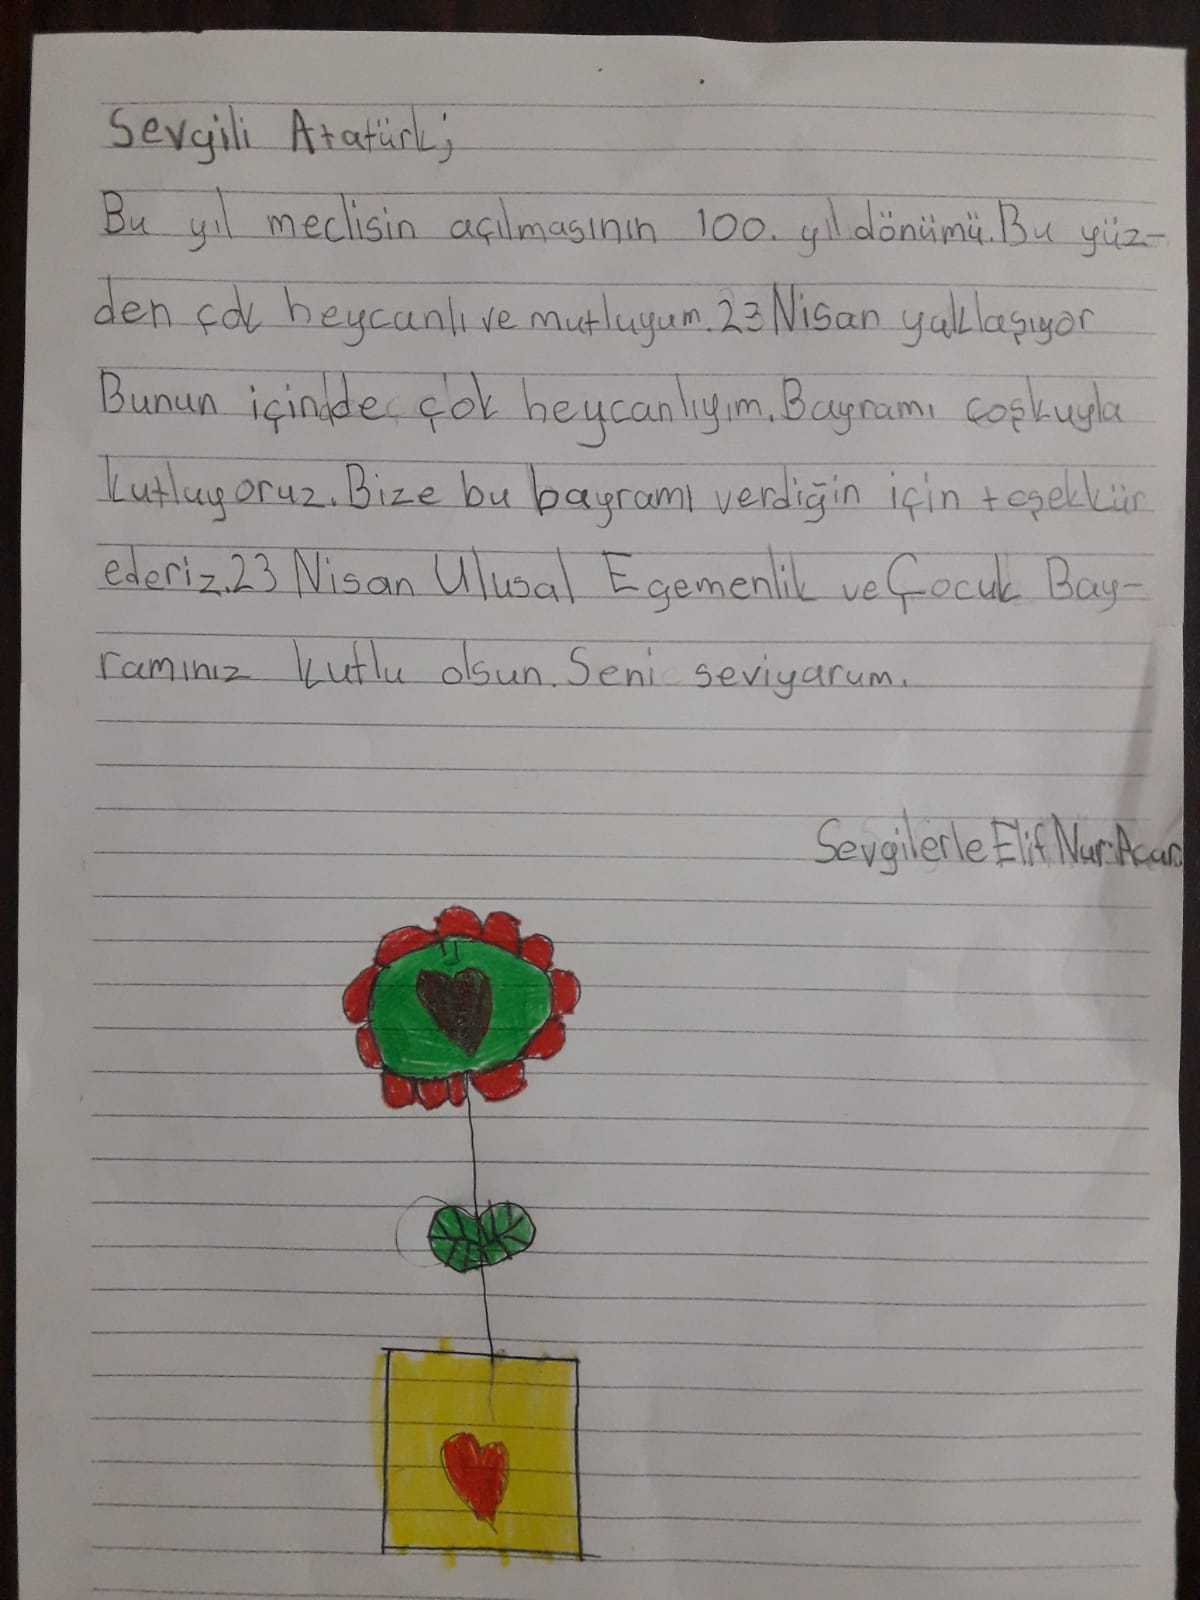 Sevgili Atatürk;
Bu yıl meclisin açılmasının 100. yıl dönümü. Bu yüz-
den çok heycanlı ve mutluyum. 23 Nisan yaklaşıyor
Bunun içinde çok heycanlıyım. Bayramı coşkuyla
kutluyoruz. Bize bu bayramı verdiğin için teşekkür
ederiz. 23 Nisan Ulusal Egemenlik ve Çocuk Bay-
ramınız kutlu olsun. Seni seviyarum.
Sevgilerle Elif Nur Acar